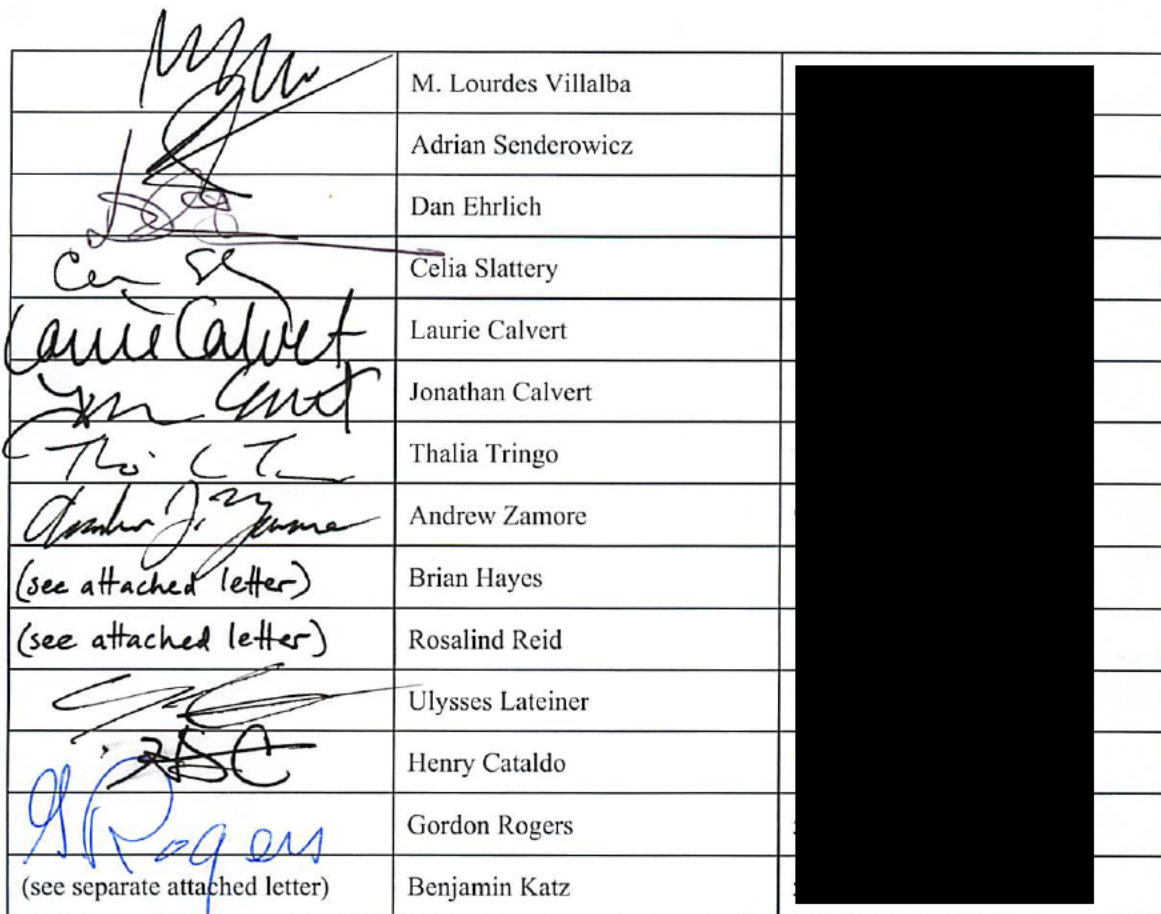 M. Lourdes Villalba
Adrian Senderowicz
Dan Ehrlich
Celia Slattery
Laurie Calvert Laurie Calvert
Jonathan Calvert
Thalia Tringo
Andrew Zamore
(see attached letter) Brian Hayes
(see attached letter) Rosalind Reid
Ulysses Lateiner
Henry Cataldo
G Rogers Gordon Rogers
(see separate attached letter) Benjamin Katz